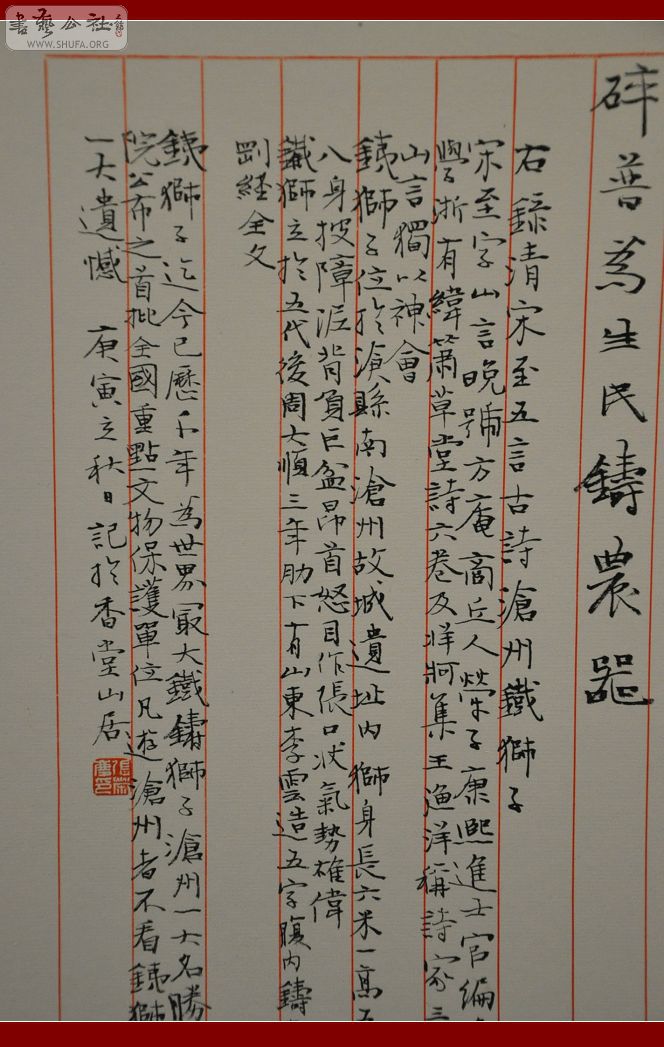 書藝公社
WWW.SHUFA.ORG
碎普為生民鑄農器
右錄清宋至五言古詩滄州鐵獅子
宋至字山言晚號方庵商丘人犖子康熙進士官編
學浙有緯蕭草堂詩六卷及牂牁集王漁洋稱詩家三
山言獨以神會
鐵獅子位於滄縣南滄州故城遺址內獅身長六米一高五
八身披障泥背負巨盆昂首怒目作張口狀氣勢雄偉
鐵獅立於五代後周大順三年肋下有山東李雲造五字腹內鑄
剛經全文
鐵獅子迄今已歷千年為世界最大鐵鑄獅子滄州一大名勝
院公布之首批全國重點文物保護單位凡遊滄州者不看鐵獅
一大遺憾 庚寅立秋日記於香堂山居